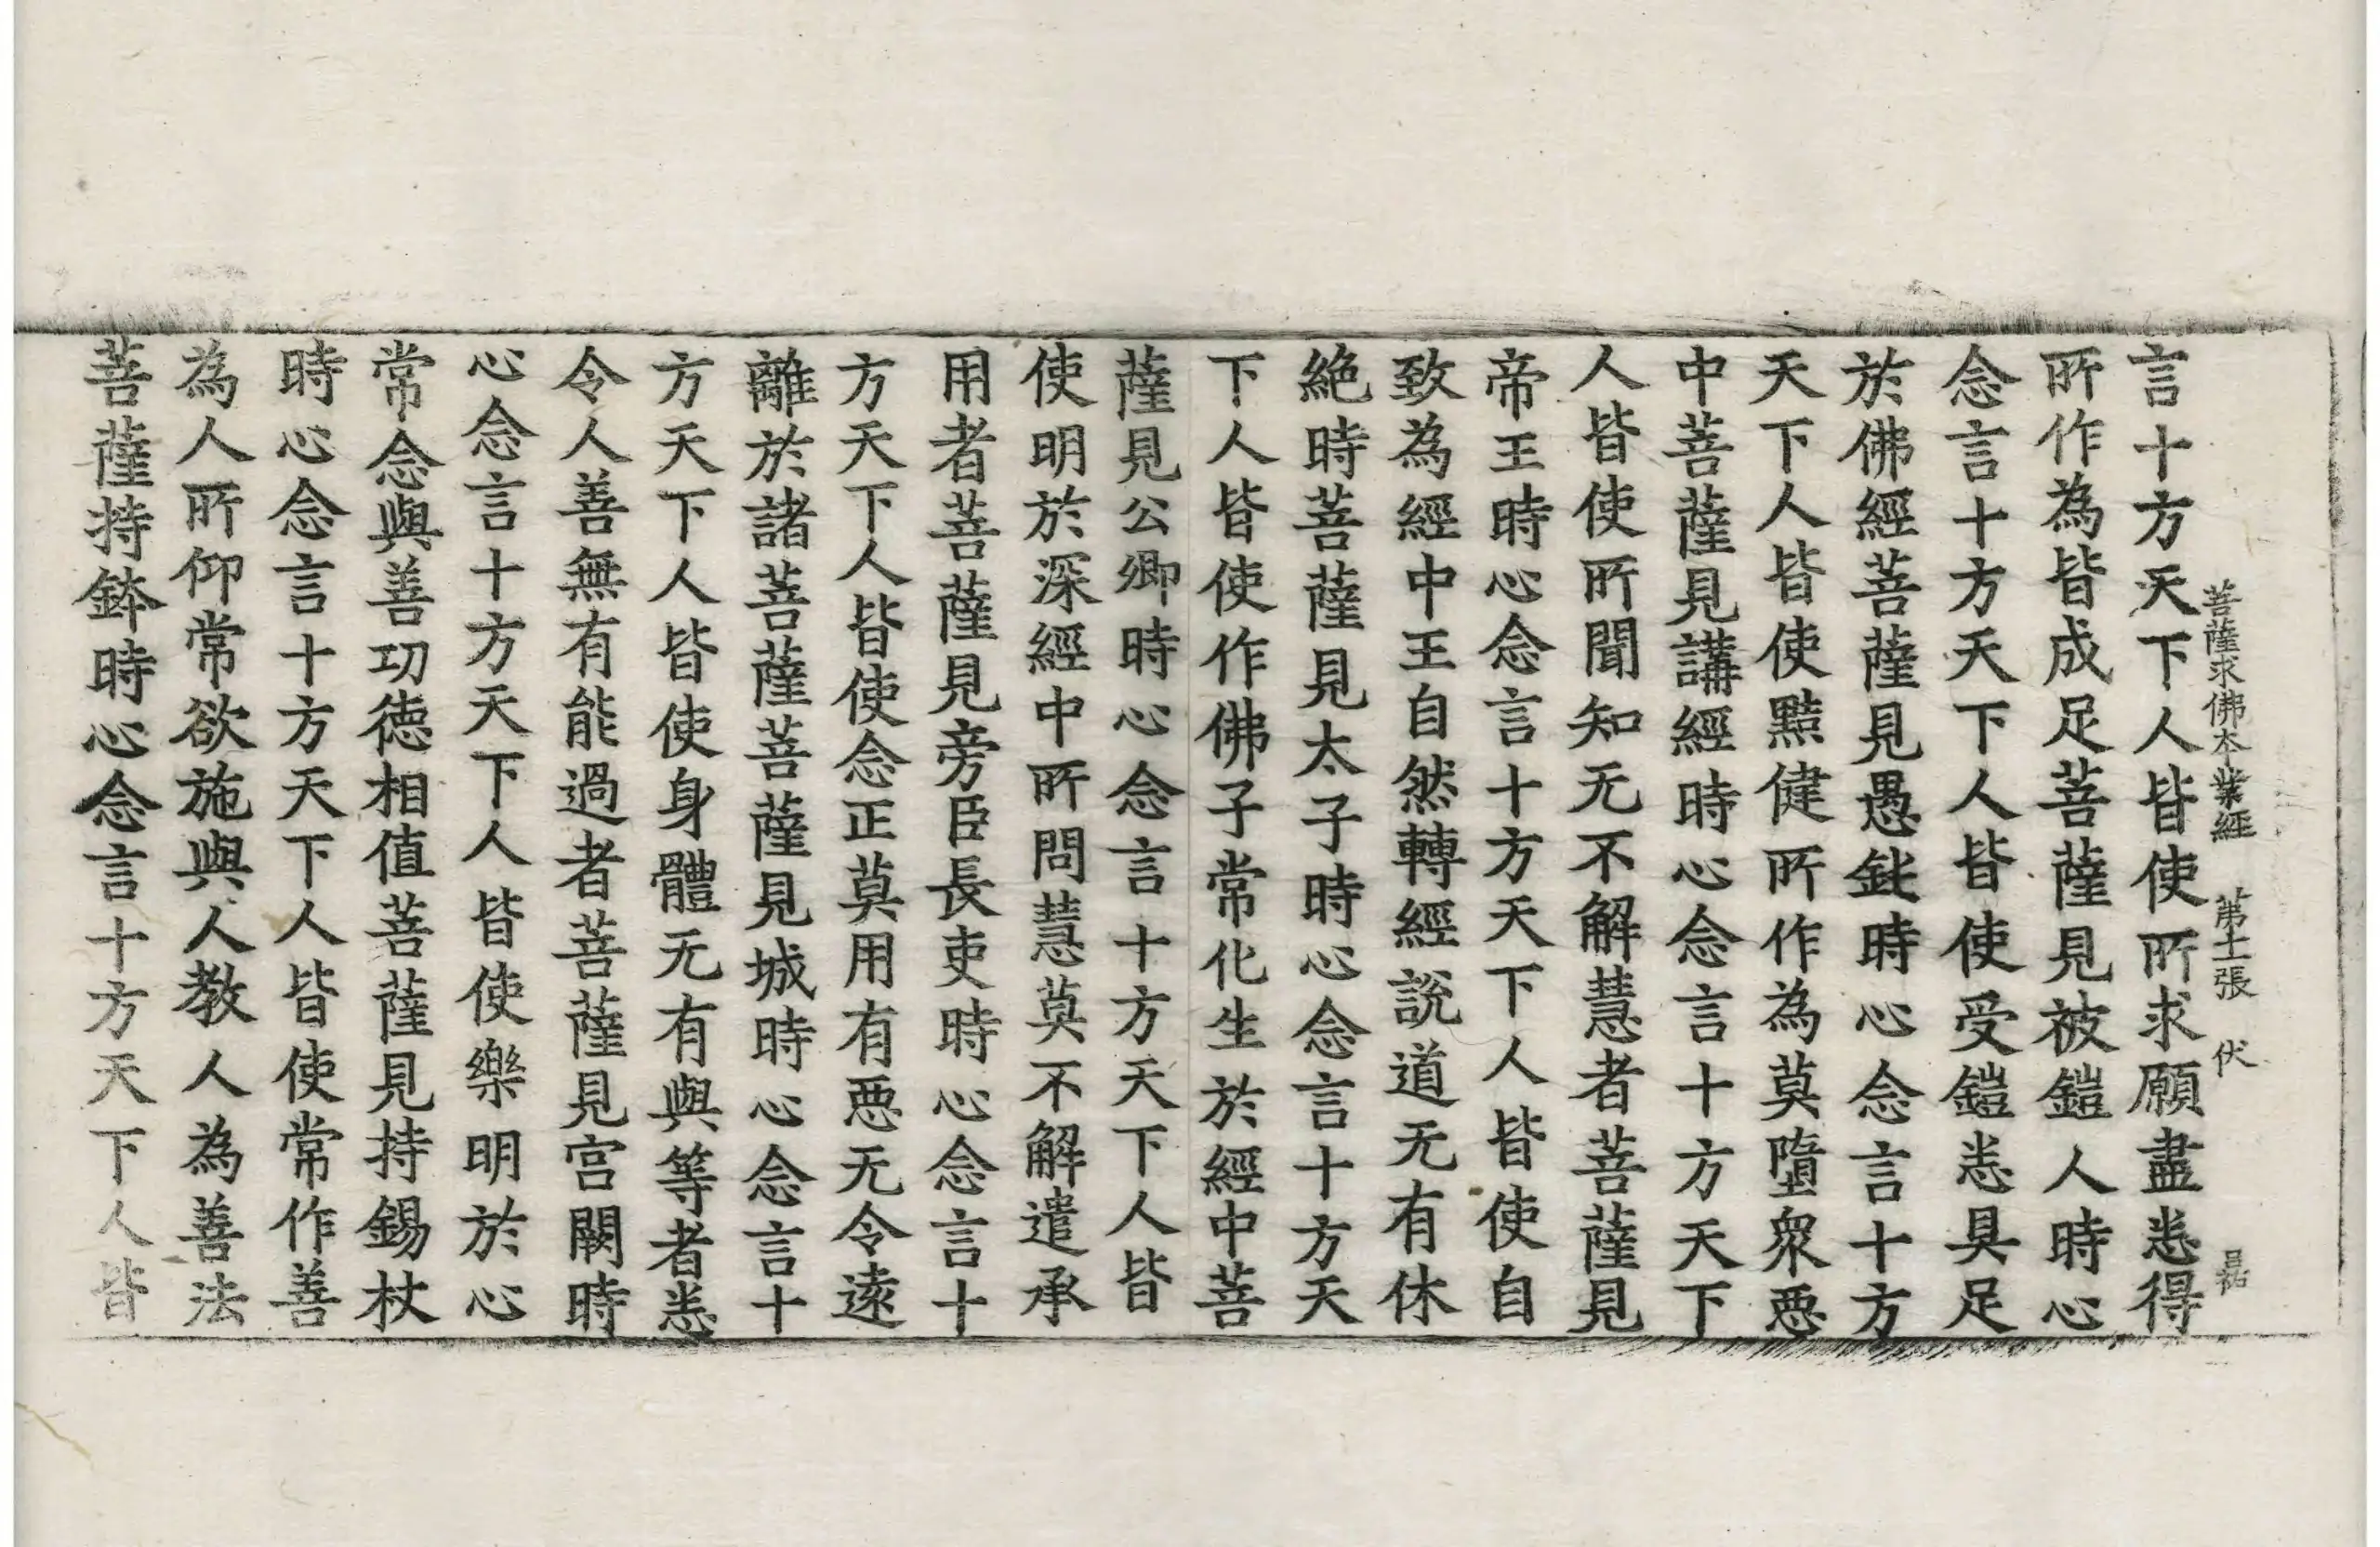 菩薩求佛本業經 第十一張 伏
言十方天下人皆使所求願盡悉得
所作為皆成足菩薩見被鎧人時心
念言十方天下人皆使受鎧悉具足
於佛經菩薩見愚㲉時心念言十方
天下人皆使黠健所作為莫墮衆惡
中菩薩見講經時心念言十方天下
人皆使所聞知无不解慧者菩薩見
帝王時心念言十方天下人皆使自
致為經中王自然轉經說道无有休
絶時菩薩見太子時心念言十方天
下人皆使作佛子常化生於經中菩
薩見公卿時心念言十方天下人皆
使明於深經中所問慧莫不解遣承
用者菩薩見旁臣長吏時心念言十
方天下人皆使念正莫用有惡无令遠
離於諸菩薩菩薩見城時心念言十
方天下人皆使身體无有與等者悉
令人善無有能過者菩薩見宫闕時
心念言十方天下人皆使樂明於心
常念與善功徳相值菩薩見持錫杖
時心念言十方天下人皆使常作善
為人所仰常欲施與人教人為善法
菩薩持鉢時心念言十方天下人皆